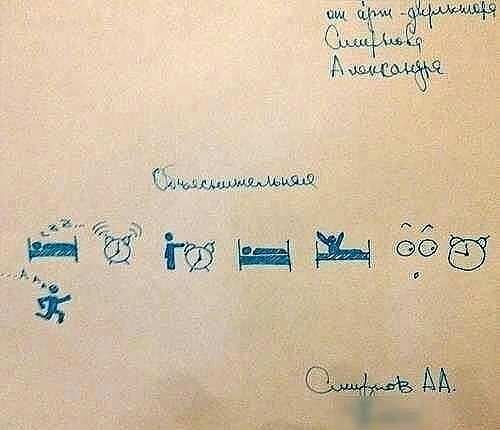 от арт-директора
Смирнова
Александра
Объяснительная
zzz...
Смирнов АА.